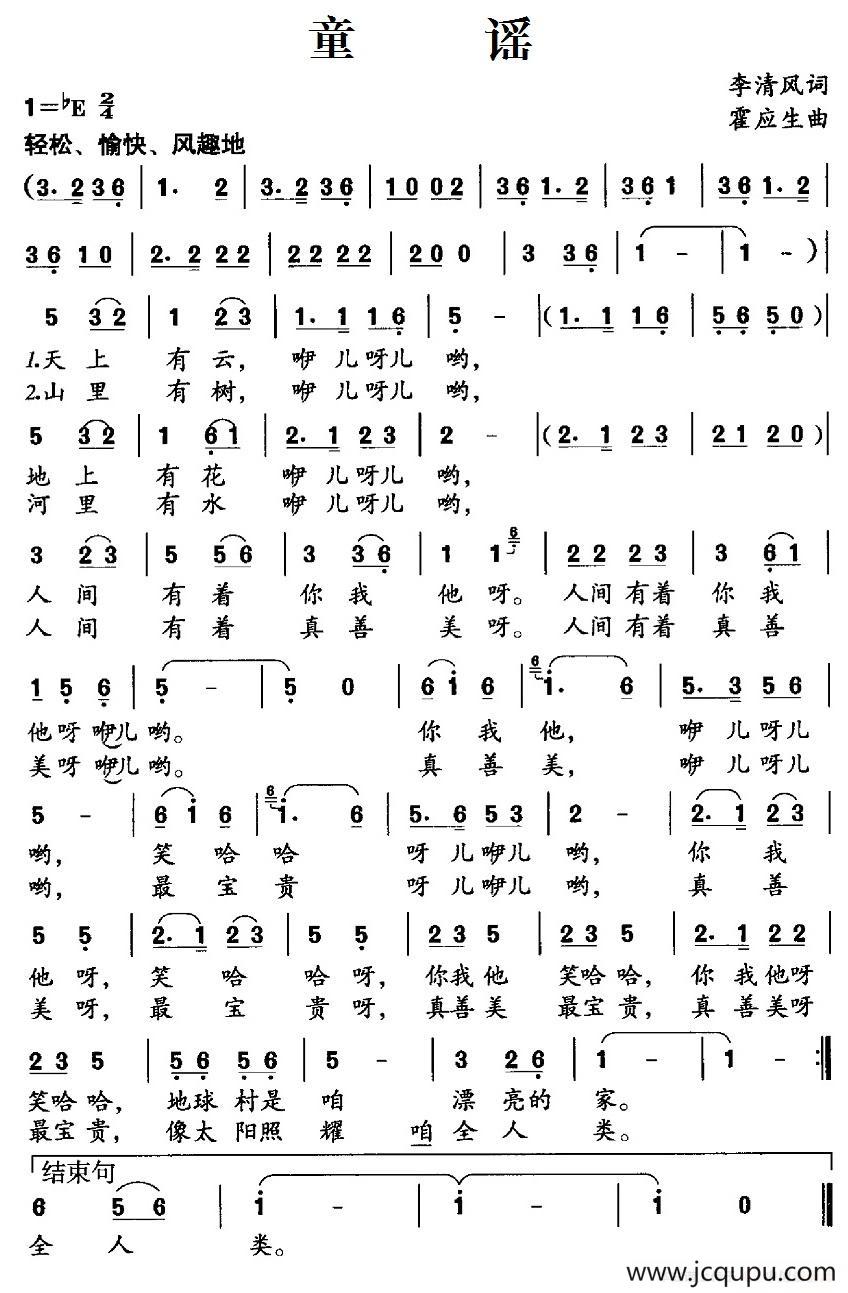 童 谣
李清风词
1=♭E 2/4
霍应生曲
轻松、愉快、风趣地
(3. 2 3 6 | 1. 2 | 3. 2 3 6 | 1 0 0 2 | 3 6 1. 2 | 3 6 1 | 3 6 1. 2 |
3 6 1 0 | 2. 2 2 2 | 2 2 2 2 | 2 0 0 | 3 3 6 | 1 - | 1 - ) |
5 3 2 | 1 2 3 | 1. 1 1 6 | 5 - | (1. 1 1 6 | 5 6 5 0) |
1.天 上 有 云, 咿 儿 呀儿 哟,
2.山 里 有 树, 咿 儿 呀儿 哟,
5 3 2 | 1 6 1 | 2. 1 2 3 | 2 - | (2. 1 2 3 | 2 1 2 0) |
地 上 有 花 咿 儿 呀儿 哟,
河 里 有 水 咿 儿 呀儿 哟,
3 2 3 | 5 5 6 | 3 3 6 | 1 1 6 | 2 2 2 3 | 3 6 1 |
人 间 有 着 你 我 他 呀。 人间 有着 你 我
人 间 有 着 真 善 美 呀。 人间 有着 真 善
1 5 6 | 5 - | 5 0 | 6 i 6 | 6 i. 6 | 5. 3 5 6 |
他 呀 咿儿 哟。 你 我 他, 咿 儿 呀儿
美 呀 咿儿 哟。 真 善 美, 咿 儿 呀儿
5 - | 6 i 6 | 6 i. 6 | 5. 6 5 3 | 2 - | 2. 1 2 3 |
哟, 笑 哈 哈 呀 儿 咿儿 哟, 你 我
哟, 最 宝 贵 呀 儿 咿儿 哟, 真 善
5 5 | 2. 1 2 3 | 5 5 | 2 3 5 | 2 3 5 | 2. 1 2 2 |
他 呀, 笑 哈 哈 呀, 你我 他 笑哈 哈, 你 我 他呀
美 呀, 最 宝 贵 呀, 真善 美 最宝 贵, 真 善 美呀
2 3 5 | 5 6 5 6 | 5 - | 3 2 6 | 1 - | 1 - :|
笑哈 哈, 地球 村是 咱 漂 亮的 家。
最宝 贵, 像太 阳照 耀 咱 全 人 类。
结束句
6 5 6 | i - | i - | i 0 ‖
全 人 类。
www.jcqupu.com